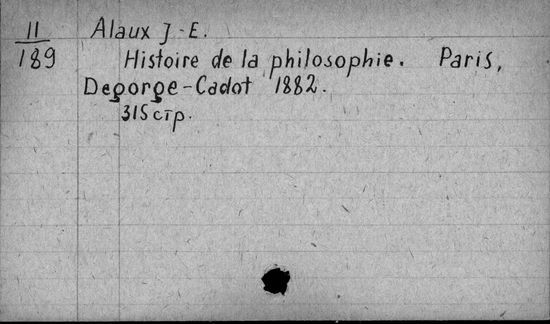 II
189
Alaux J.-E.
Histoire de la philosophie. Paris,
Degorge-Cadot 1882.
315 стр.